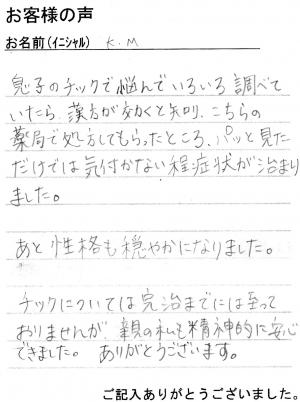 お客様の声
お名前(イニシャル) K.M
息子のチックで悩んでいろいろ調べて
いたら、漢方が効くと知り、こちらの
薬局で処方してもらったところ、パッと見た
だけでは気付かない程症状が治まり
ました。
あと性格も穏やかになりました。
チックについては完治までには至って
おりませんが、親の私も精神的に安心
できました。 ありがとうございます。
ご記入ありがとうございました。